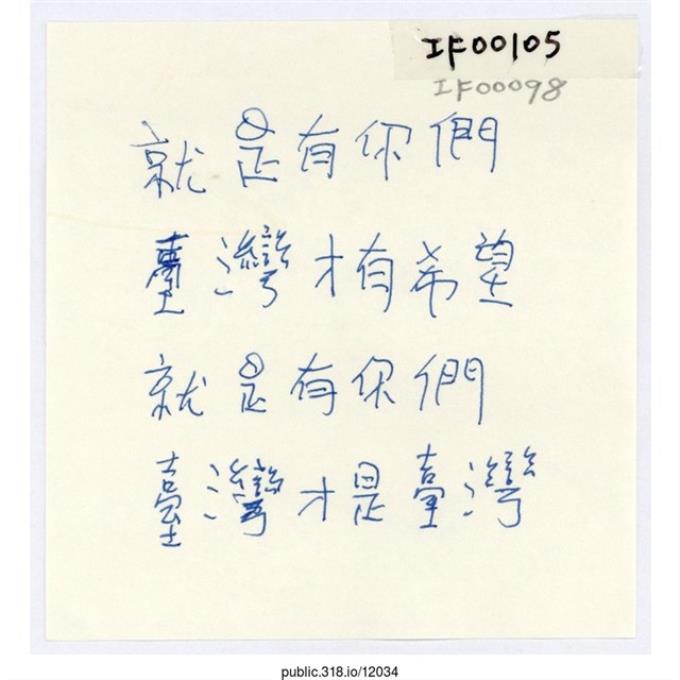 IF00105
IF00098
就是有你們
臺灣才有希望
就是有你們
臺灣才是臺灣
public.318.io/12034